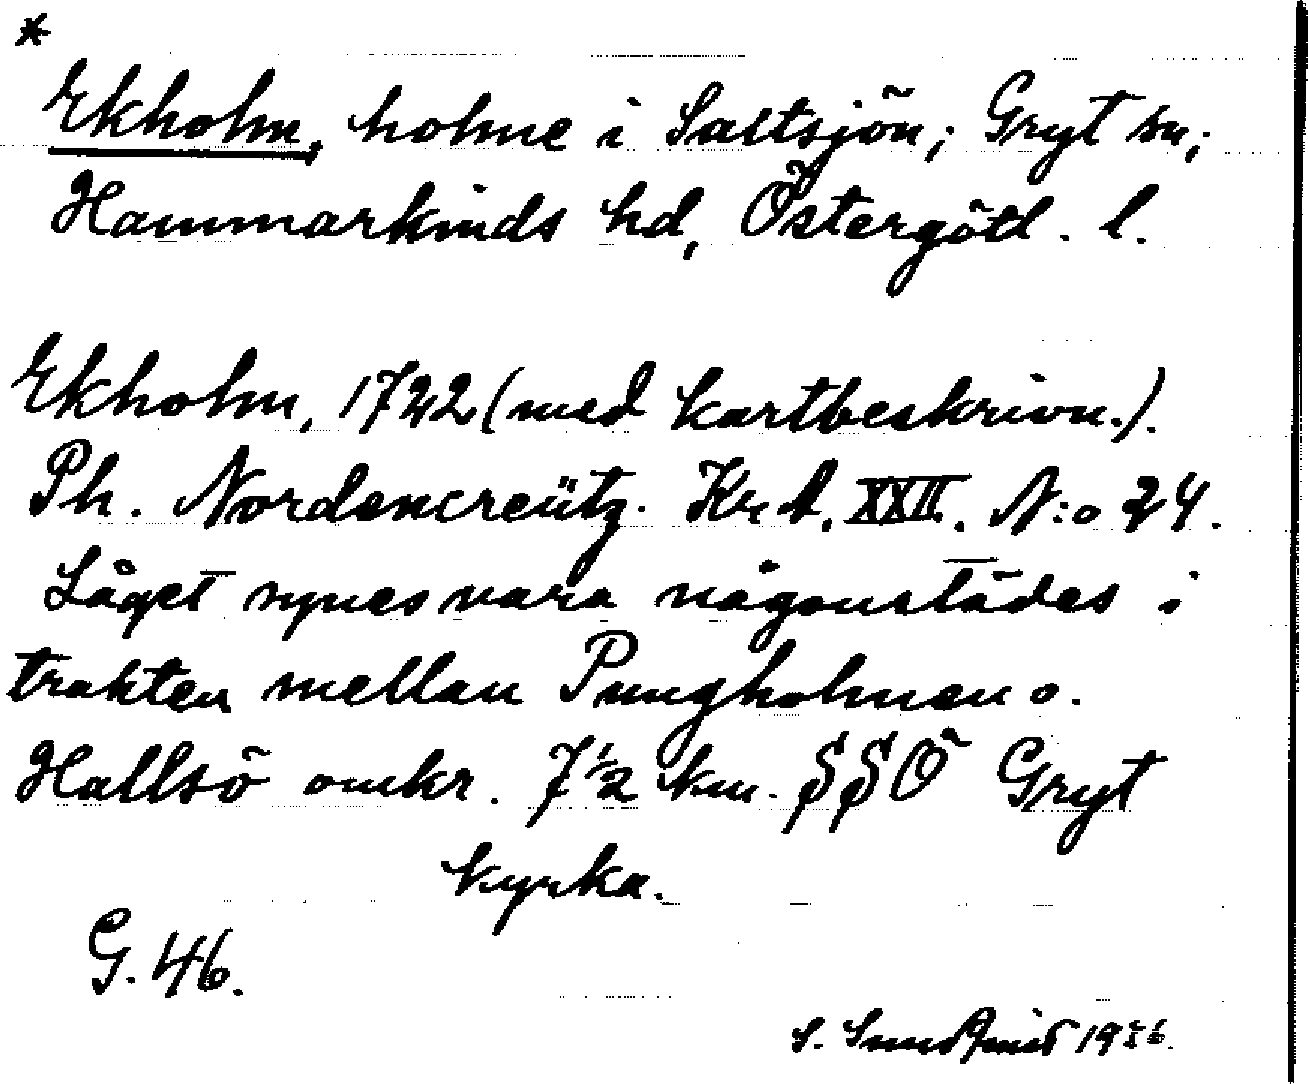 *
Ekholm, holme i Saltsjön; Gryt sn;
Hammarkinds hd, Östergötl. l.
Ekholm, 1722 (med kartbeskrivn.).
Ph. Nordencreütz. Kr. A. XXII. N:o 24.
Läget synes vara någonstädes i
trakten mellan Pungholmen o.
Hallsö omkr. 7 1/2 km. SSÖ Gryt
kyrka.
G. 46.
S. Sundqvist 19